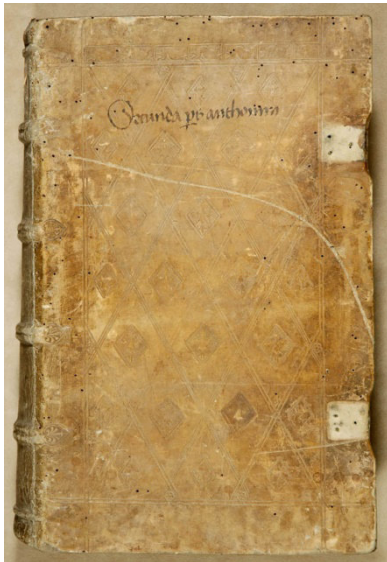 Secunda ps anthonini